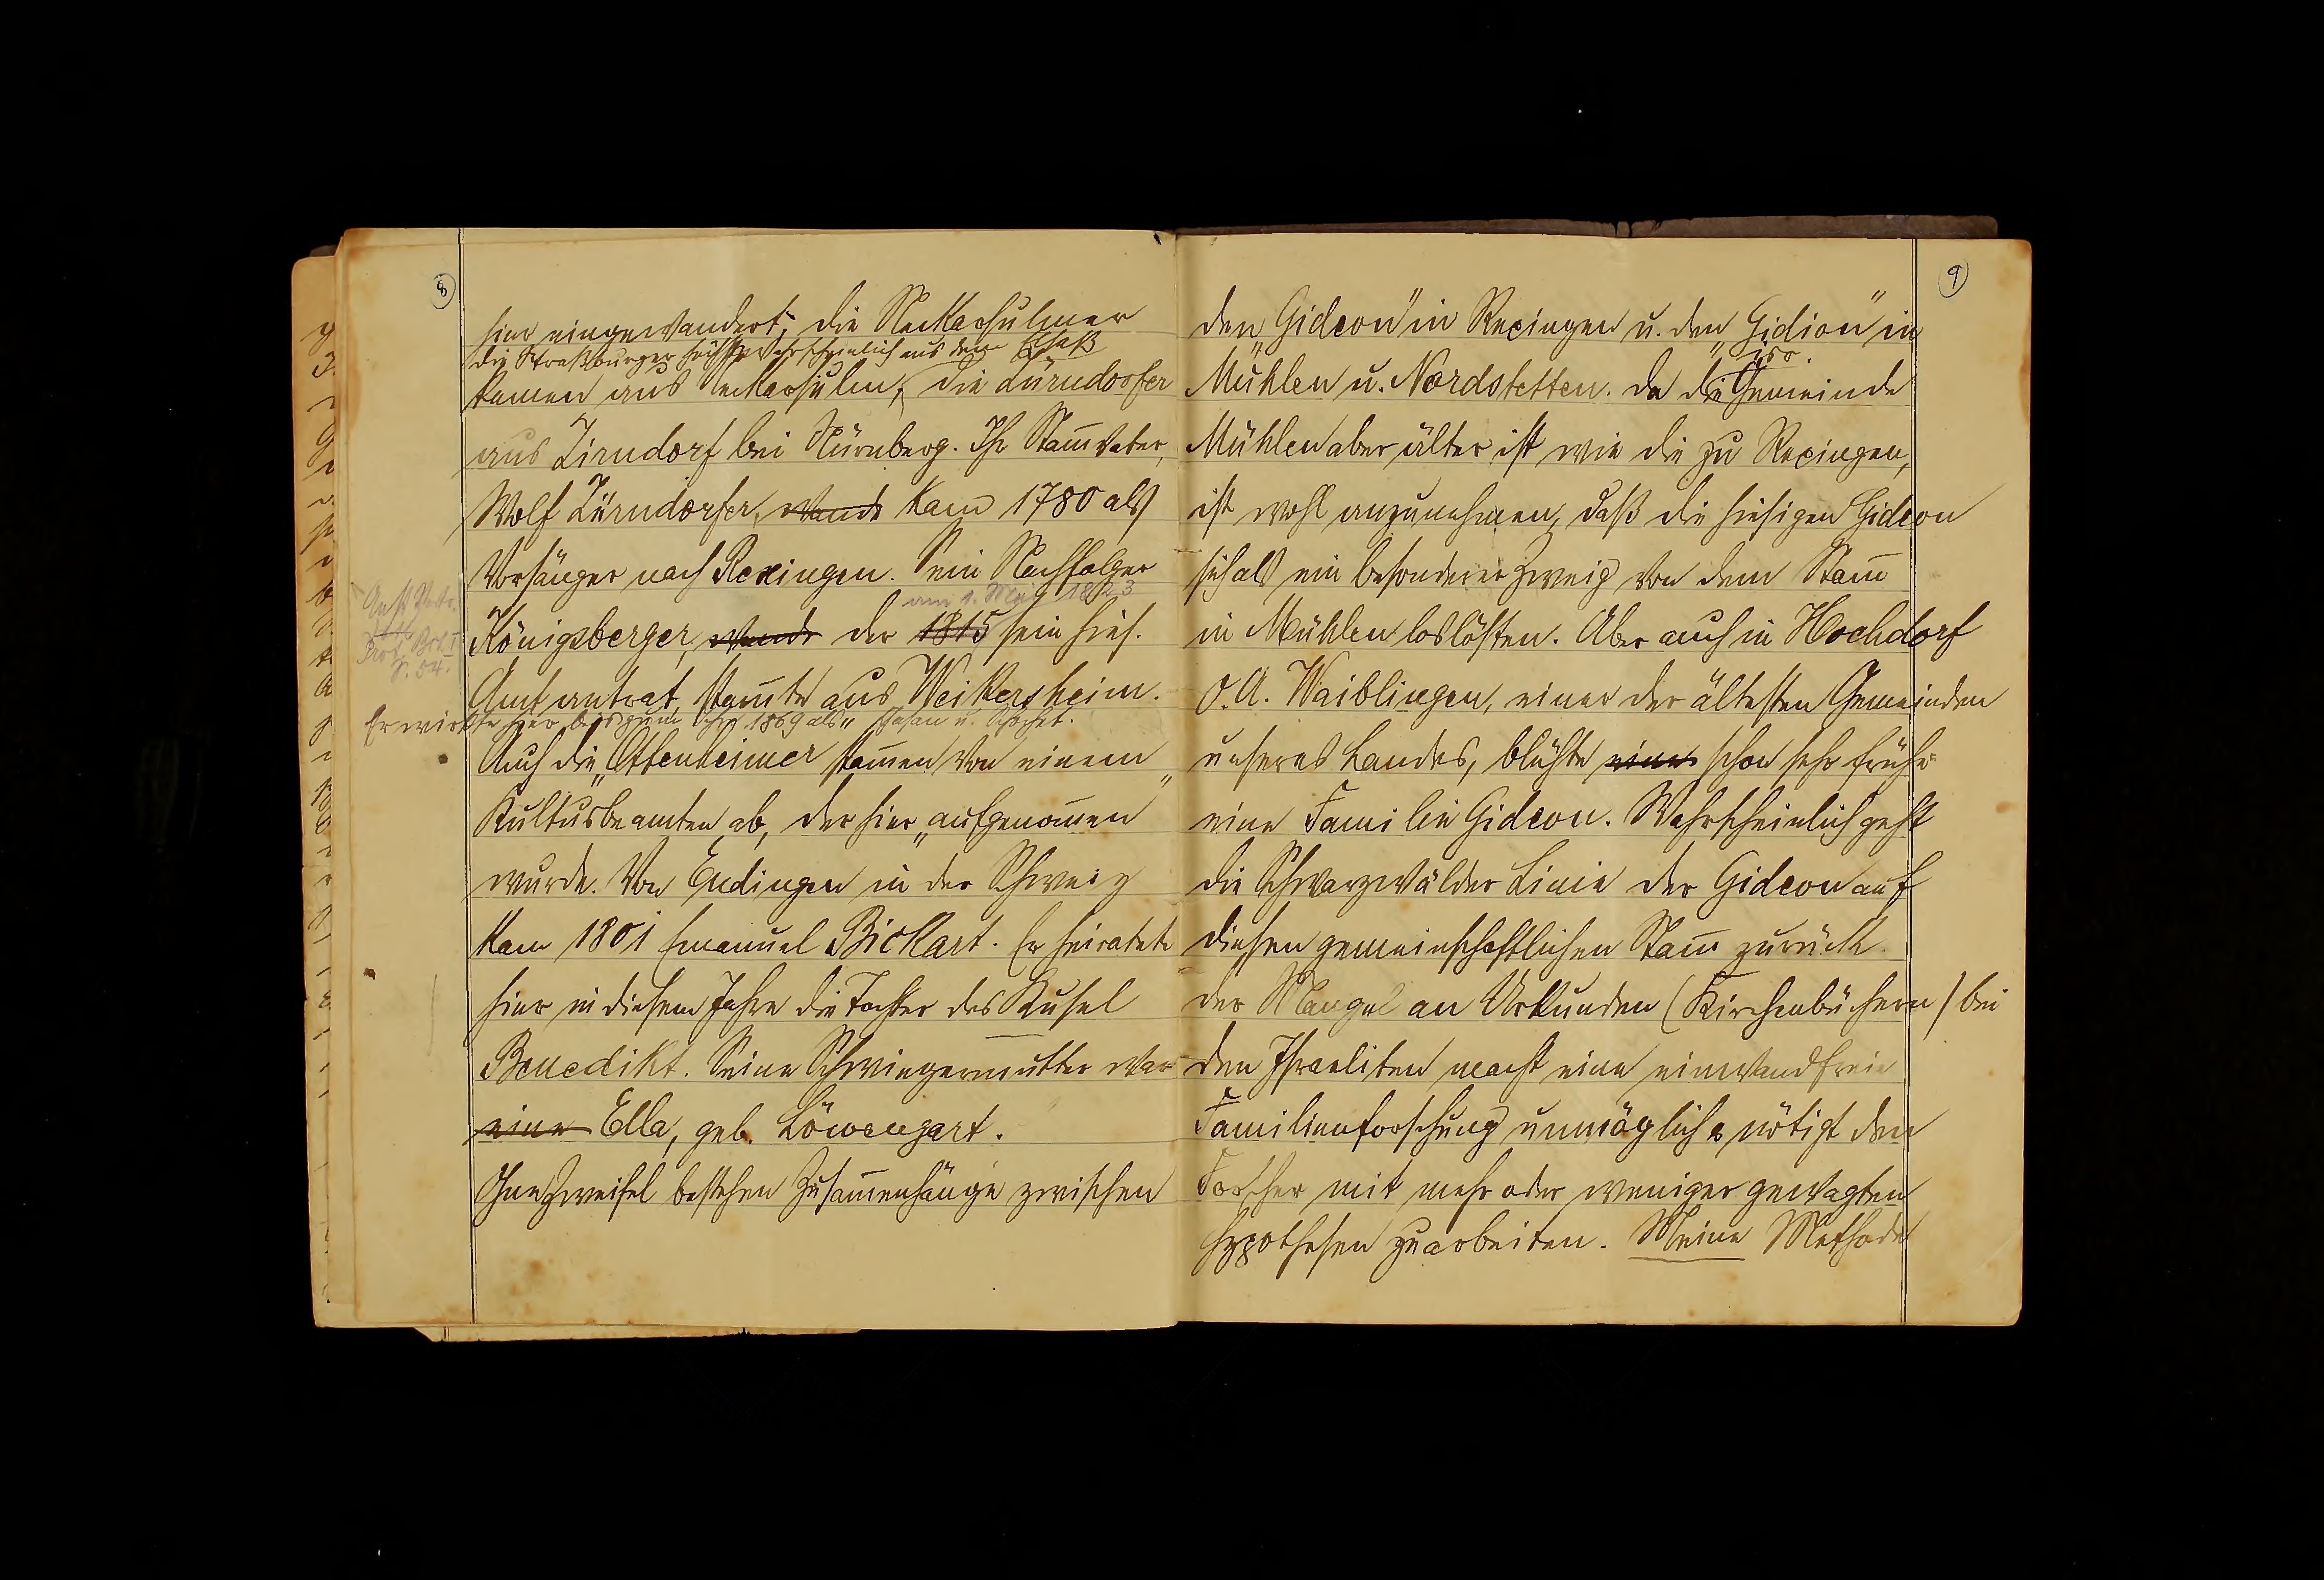 8
hier eingewandert; die Neckarsulmer
die Straßburger höchstwahrscheinlich aus dem Elsaß
kamen aus Neckarsulm, die Zürndorfer
aus Zirndorf bei Nürnberg. Ihr Stam̄vater,
Wolf Zürndorfer, wurde kam 1780 als
Vorsänger nach Rexingen. Sein Nachfolger
am 1. Mai 1823
Königsberger, wurde der 1815 sein hies.
Prot. Bd. I
S. 54.
Amt antrat, stam̄te aus Weikersheim.
Er wirkte hier bis zum Jahre 1869 als „Chasan u. Schochet.
Auch die „Ottenheimer stam̄en von einem
Kultusbeamten ab, der hier „aufgenom̄en"
wurde. Von Endingen in der Schweiz
kam 1801 Emanuel Bickart. Er heiratete
hier in diesem Jahre die Tochter des Kusel
Benedikt. Seine Schwiegermutter war
eine Ella, geb. Löwengart.
Ohne Zweifel bestehen Zusam̄enhänge zwischen
9
den „Gideon" in Rexingen u. den „Gidion" in
isr.
Mühlen u. Nordstetten. Da die Gemeinde
Mühlen aber älter ist wie die zu Rexingen,
ist wohl anzunehmen, daß die hiesigen Gideon
sich als ein besonderer Zweig von dem Stam̄
in Mühlen loslösten. Aber auch in Hochdorf
O.A. Waiblingen, einer der ältesten Gemeinden
unseres Landes, blühte eine schon sehr frühe
eine Familie Gideon. Wahrscheinlich geht
die Schwarzwälder Linie der Gideon auf
diesen gemeinschaftlichen Stam̄ zurück.
Der Mangel an Urkunden (Kirchenbüchern) bei
den Israeliten macht eine einwandfreie
Familienforschung unmöglich & nötigt den
Forscher mit mehr oder weniger gewagten
Hypothesen zu arbeiten. Meine Methode